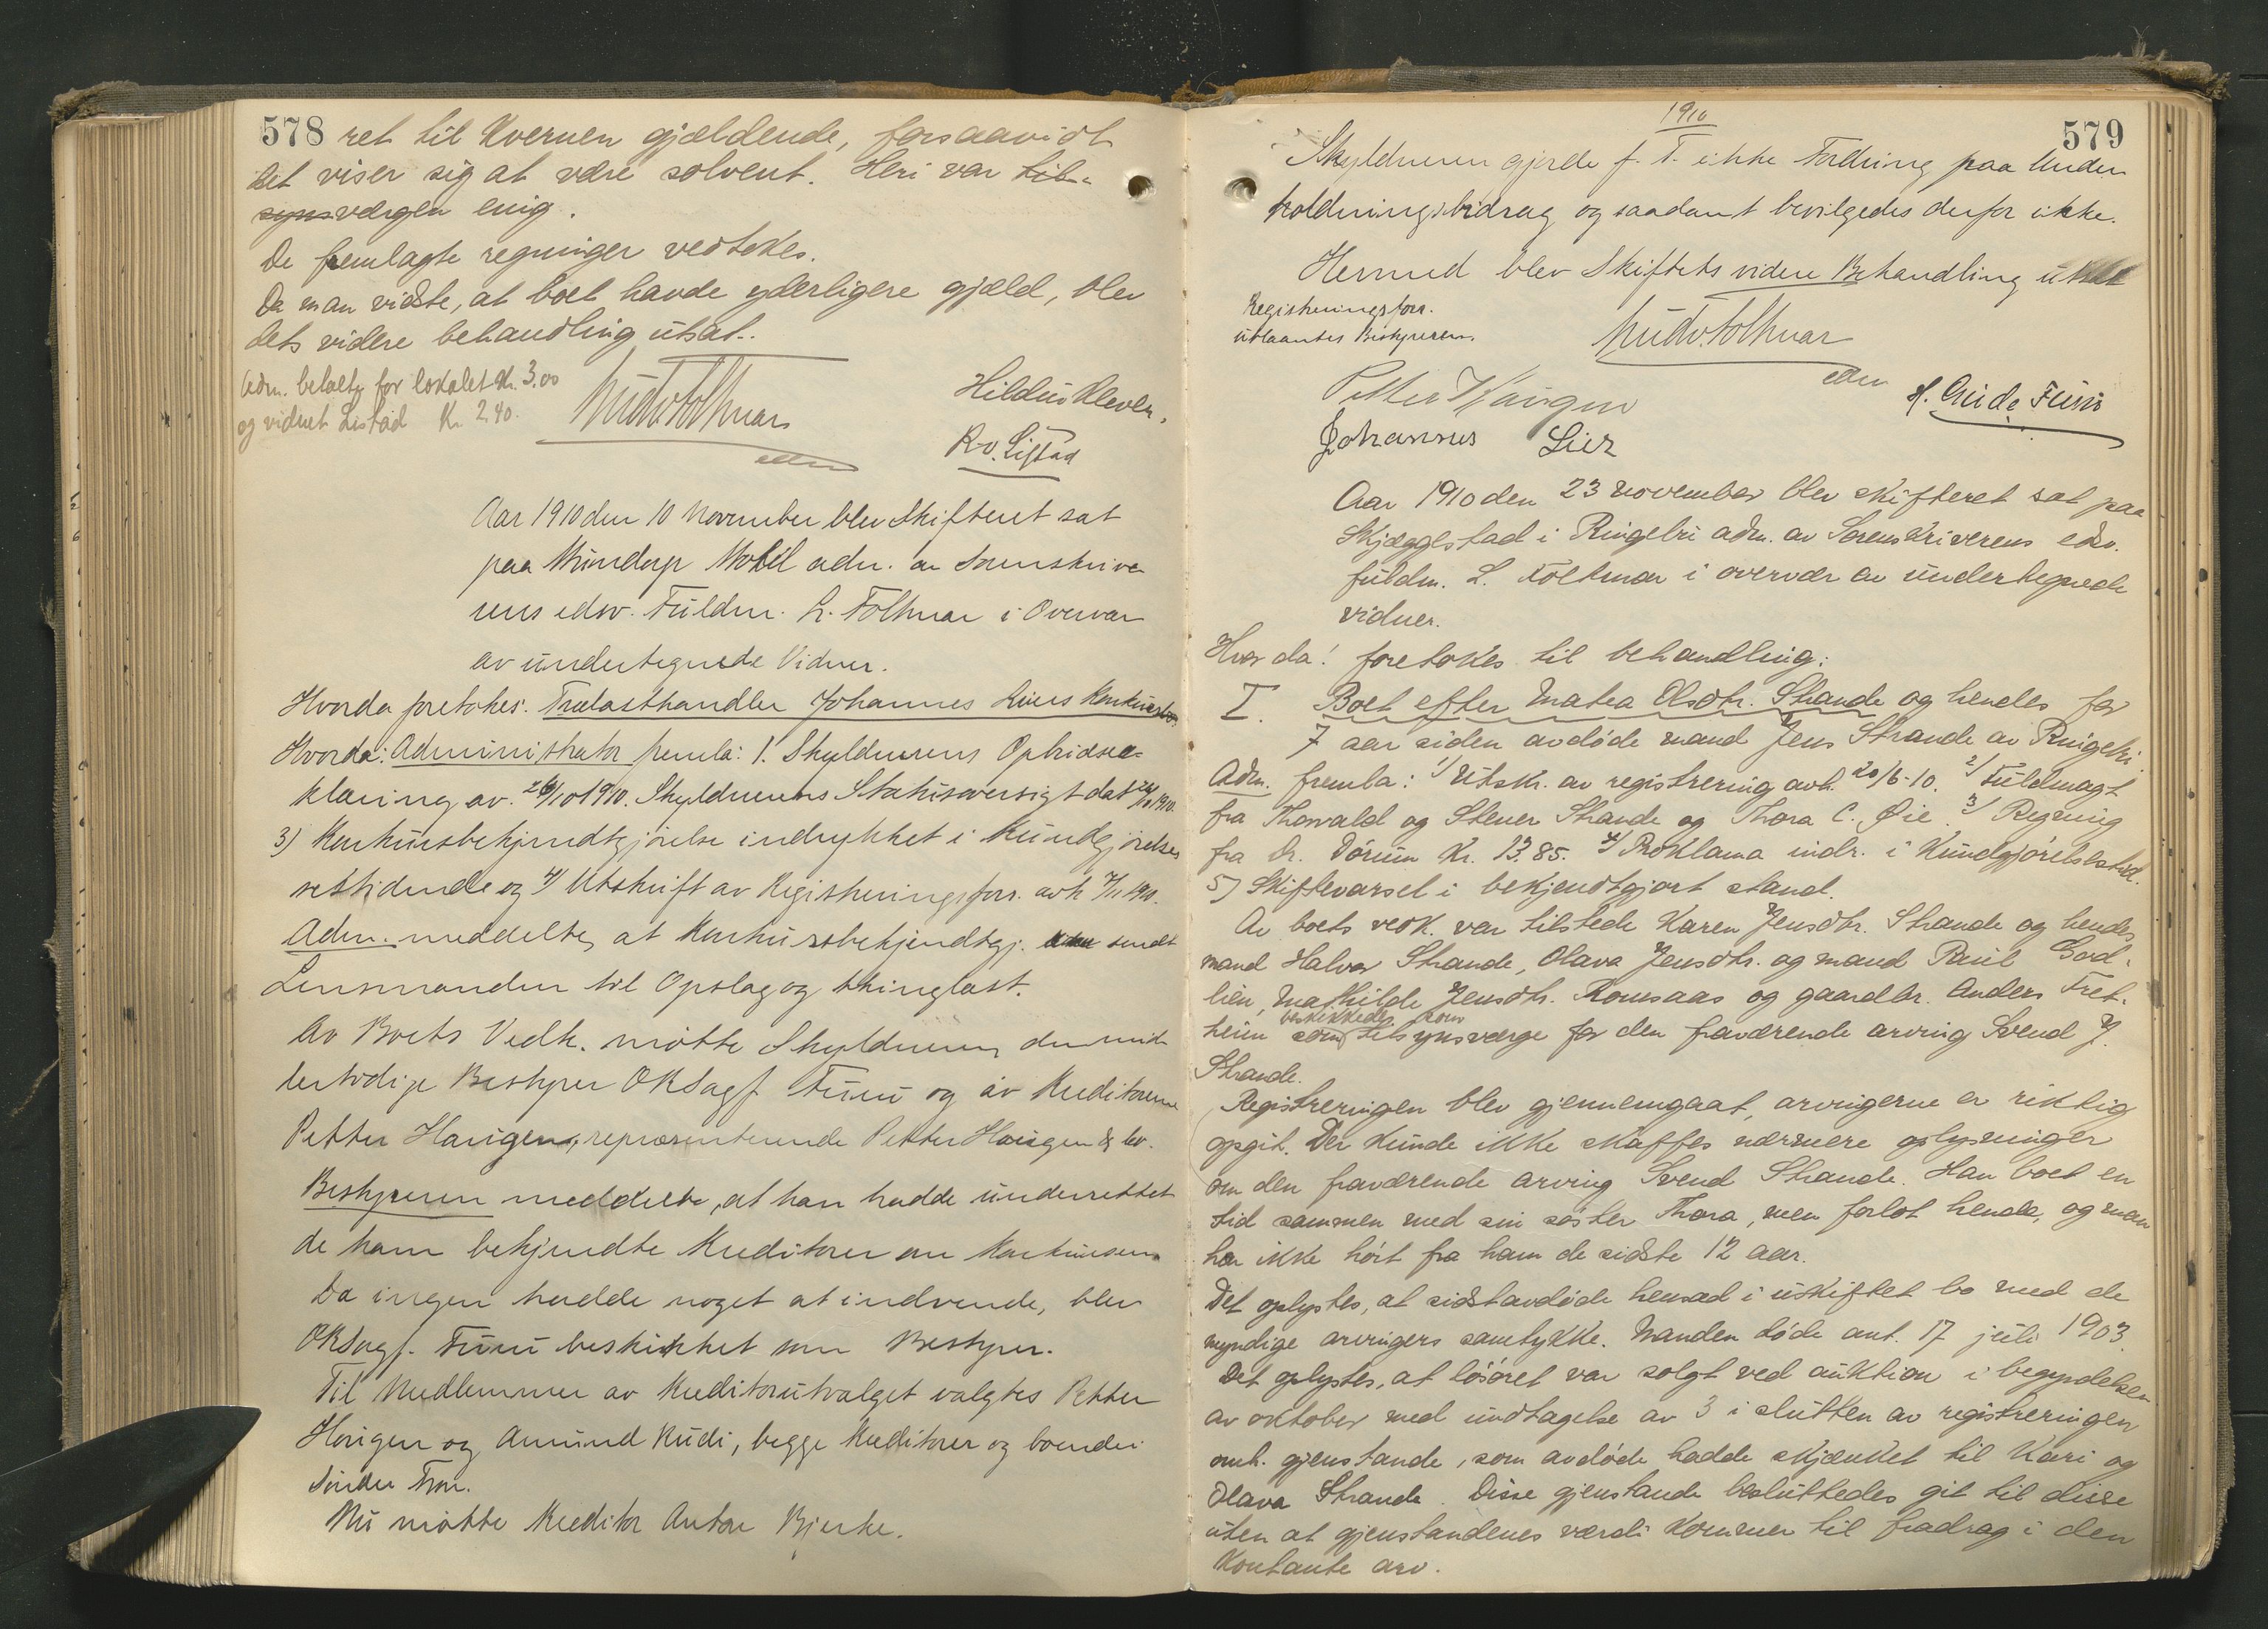 578 ret til Kvernen gjældende, forsaavidt
det viser sig at være solvent. Heri var til-
synsværgen enig.
De fremlagte regninger vedtokes.
Da man vidste, at boet havde yderligere gjæld, blev
dets videre behandling utsat.
Adm. betalte for lokalet Kr. 3.00
og vidnet Listad Kr. 2.40.
Ludv. Foltmar
edsv
Hildur Kleven,
R. O. Listad
Aar 1910 den 10 November blev Skifteret sat
paa Hundorp Motel adm. av Sorenskrive
rens edsv. Fuldm. L. Foltmar i Overvær
av undertegnede Vidner.
Hvorda foretokes: Trælasthandler Johannes Liers Konkursbo.
Hvorda: Administrator fremla: 1. Skyldnerens Opbudser-
klæring av 26/10 1910. Skyldnerens Statusoversigt dat 24/10 1910.
3) Konkursbekjendtgjørelse indrykket i Kundgjørelses
sestidende og 4) Utskrift av Registreringsforr. avh 7/11 1910.
Adm. meddelte, at Konkursbekjendtgj. sendt
Lensmanden til Opslag og thinglæst.
Av Boets Vedk. møtte Skyldneren, den mid
lertidige Bestyrer ORSagf. Furu og av Kreditorerne
Petter Haugen, repræsenterende Petter Haugen & Co.
Bestyreren meddelte, at han hadde underrettet
de ham bekjendte Kreditorer om Konkursen.
Da ingen hadde noget at indvende, blev
ORSagf. Furu beskikket som Bestyrer.
Til Medlemmer av Kreditorutvalget valgtes Petter
Haugen og Amund Rudi, begge Kreditorer og boende i
Søndre Fron.
Nu møtte Kreditor Anton Bjerke.
1910
579
Skyldneren gjorde f. T. ikke Fordring paa Under
holdningsbidrag og saadant bevilgedes derfor ikke.
Hermed blev Skiftets videre Behandling utsat
Registreringsforr.
utlaantes Bestyreren.
Ludv. Foltmar
edsv
Petter Haugen
H. Gude Furu
Johannes Lier
Aar 1910 den 23 november blev skifteret sat paa
Skjæggestad i Ringebu adm. av Sorenskriverens edsv.
fuldm. L. Foltmar i overvær av undertegnede
vidner.
Hvor da! foretokes til behandling:
I. Boet efter Matea Olsdtr. Strande og hendes for
7 aar siden avdøde mand Jens Strande av Ringebu.
Adm. fremla: 1) Utskr. av registrering avh. 20/6-10. 2) Fuldmagt
fra Thorvald og Stener Strande og Thora C. Øie. 3) Regning
fra Dr. Dørum Kr. 13.85. 4) Proklama indr. i Kundgjørelsestid.
5) Skiftevarsel i bekjendtgjort stand.
Av boets vedk. var tilstede Karen Jensdtr. Strande og hendes
mand Halvor Strande, Olava Jensdtr. og mand Paul Gord-
lien, Mathilde Jensdtr. Romsaas og gaardbr. Anders Tret-
beskikkedes som
heim som tilsynsværge for den fraværende arving Svend J.
Strande.
Registreringen blev gjennemgaat, arvingerne er riktig
opgit. Der kunde ikke skaffes nærmere oplysninger
om den fraværende arving Svend Strande. Han boet en
tid sammen med sin søster Thora, men forlot hende, og man
har ikke hørt fra ham de sidste 12 aar.
Det oplystes, at sidstavdøde hensad i uskiftet bo med de
myndige arvingers samtykke. Manden døde ant. 17 juli 1903.
Det oplystes, at løsøret var solgt ved auktion i begyndelsen
av oktober med undtagelse av 3 i slutten av registreringen
omh. gjenstande, som avdøde hadde skjænket til Kari og
Olava Strande. Disse gjenstande besluttedes git til disse
uten at gjenstandenes værdi kommer til fradrag i den
Kontante arv.